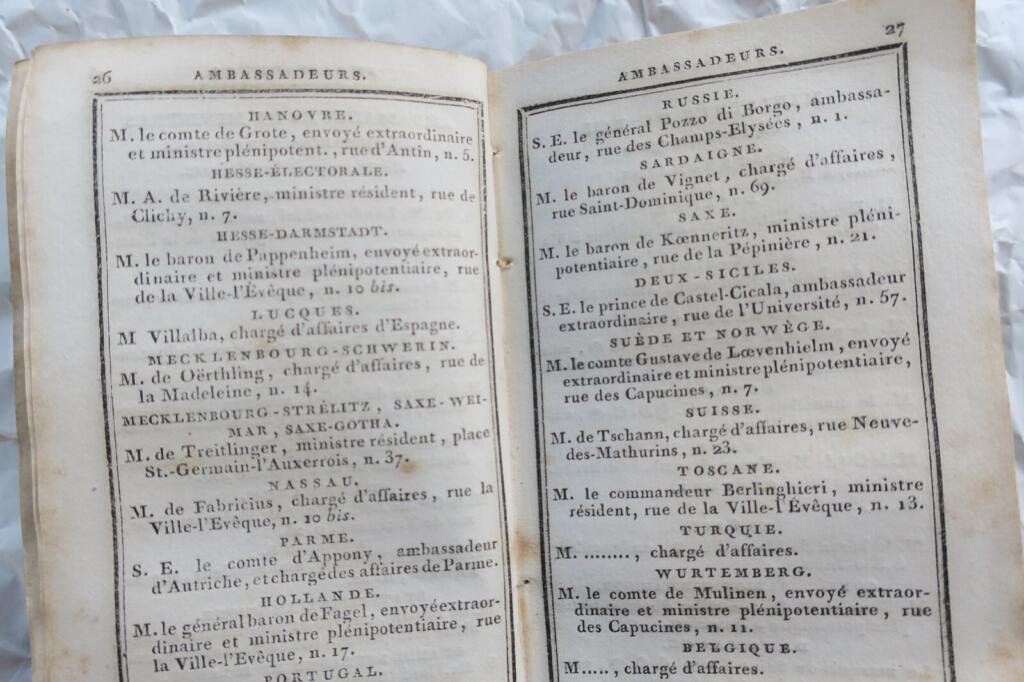 26
AMBASSADEURS.
HANOVRE.
M. le comte de Grote, envoyé extraordinaire
et ministre plénipotent., rue d'Antin, n. 5.
HESSE-ÉLECTORALE.
M. A. de Rivière, ministre résident, rue de
Clichy, n. 7.
HESSE-DARMSTADT.
M. le baron de Pappenheim, envoyé extraor-
dinaire et ministre plénipotentiaire, rue
de la Ville-l'Evêque, n. 10 bis.
LUCQUES.
M Villalba, chargé d'affaires d'Espagne.
MECKLENBOURG-SCHWERIN.
M. de Oërthling, chargé d'affaires, rue de
la Madeleine, n. 14.
MECKLENBOURG-STRÉLITZ, SAXE-WEI-
MAR, SAXE-GOTHA.
M. de Treitlinger, ministre résident, place
St.-Germain-l'Auxerrois, n. 37.
NASSAU.
M. de Fabricius, chargé d'affaires, rue la
Ville-l'Evêque, n. 10 bis.
PARME.
S. E. le comte d'Appony, ambassadeur
d'Autriche, et chargé des affaires de Parme.
HOLLANDE.
M. le général baron de Fagel, envoyé extraor-
dinaire et ministre plénipotentiaire, rue
la Ville-l'Evêque, n. 17.
PORTUGAL.
27
AMBASSADEURS.
RUSSIE.
S. E. le général Pozzo di Borgo, ambassa-
deur, rue des Champs-Elysées, n. 1.
SARDAIGNE.
M. le baron de Vignet, chargé d'affaires,
rue Saint-Dominique, n. 69.
SAXE.
M. le baron de Kœnneritz, ministre pléni-
potentiaire, rue de la Pépinière, n. 21.
DEUX-SICILES.
S. E. le prince de Castel-Cicala, ambassadeur
extraordinaire, rue de l'Université, n. 57.
SUÈDE ET NORWÈGE.
M. le comte Gustave de Lœvenhielm, envoyé
extraordinaire et ministre plénipotentiaire,
rue des Capucines, n. 7.
SUISSE.
M. de Tschann, chargé d'affaires, rue Neuve-
des-Mathurins, n. 23.
TOSCANE.
M. le commandeur Berlinghieri, ministre
résident, rue de la Ville-l'Evêque, n. 13.
TURQUIE.
M. ........, chargé d'affaires.
WURTEMBERG.
M. le comte de Mulinen, envoyé extraor-
dinaire et ministre plénipotentiaire, rue
des Capucines, n. 11.
BELGIQUE.
M....., chargé d'affaires.